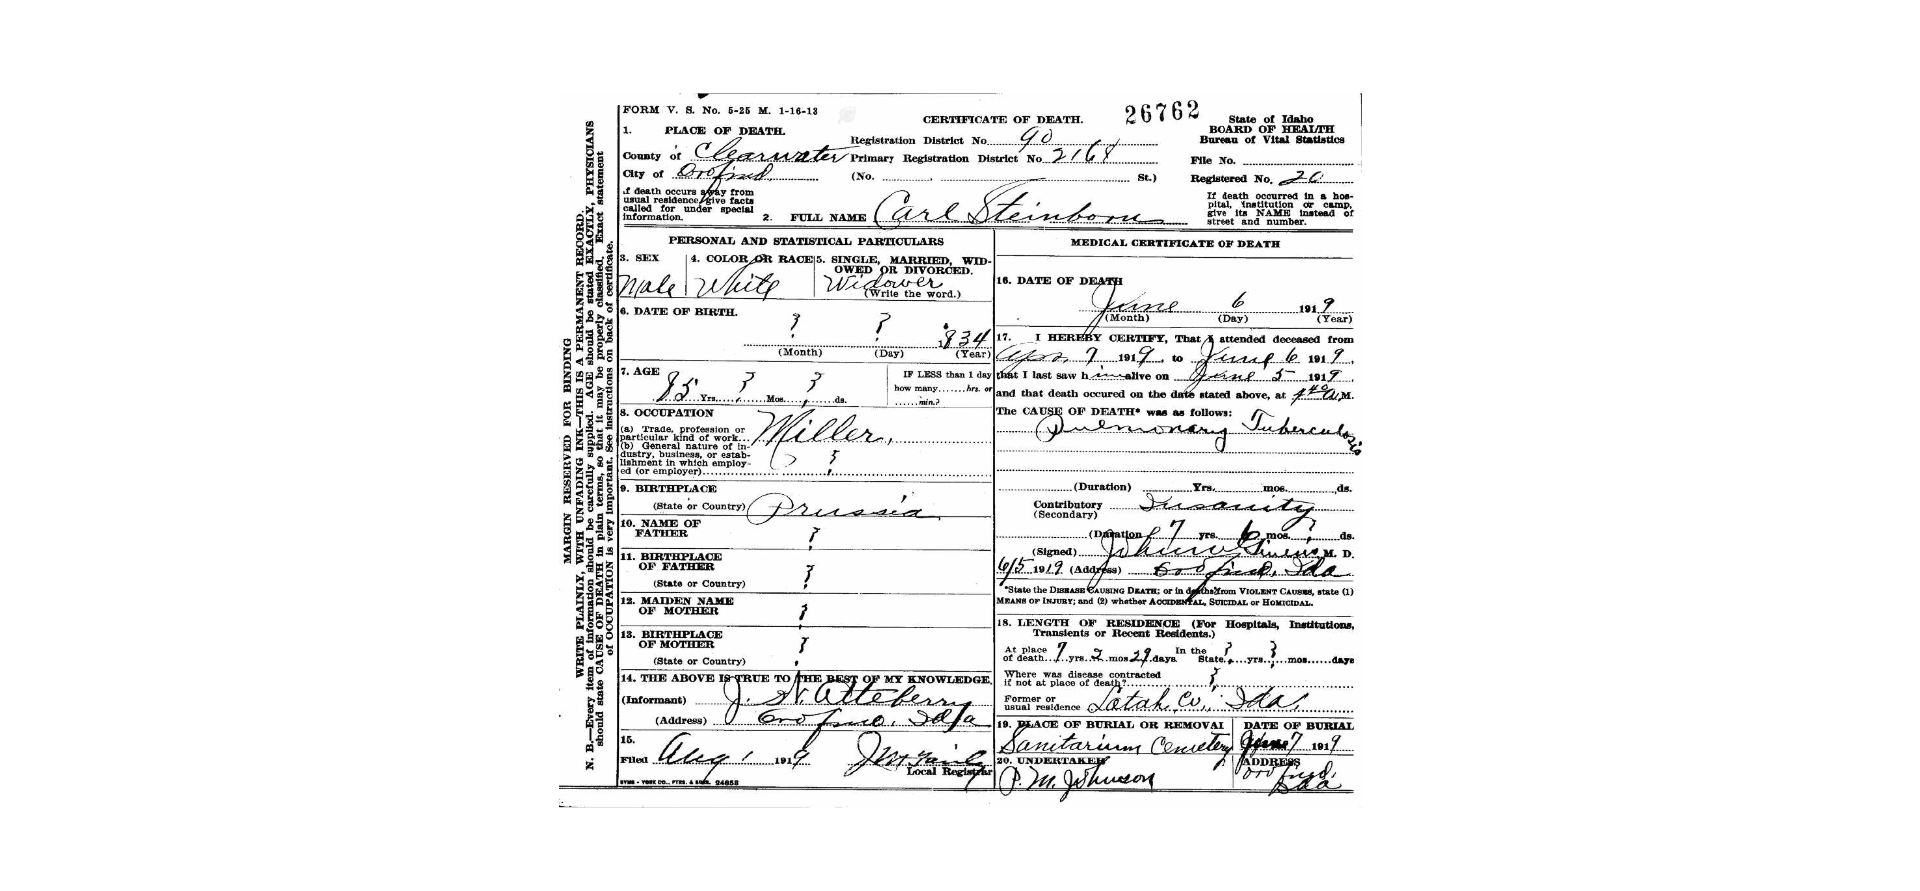 FORM V. S. No. 5-25 M. 1-16-13
CERTIFICATE OF DEATH.
26762
State of Idaho
BOARD OF HEALTH
Bureau of Vital Statistics
1. PLACE OF DEATH.
Registration District No 90
County of Clearwater Primary Registration District No 2168
File No.
City of Orofino (No. St.) Registered No. 20
If death occurs away from
usual residence give facts
called for under special
information.
2. FULL NAME Carl Steinborn
If death occurred in a hos-
pital, institution or camp,
give its NAME instead of
street and number.
PERSONAL AND STATISTICAL PARTICULARS
3. SEX Male
4. COLOR OR RACE White
5. SINGLE, MARRIED, WID-
OWED OR DIVORCED.
Widower
(Write the word.)
6. DATE OF BIRTH.
? ? 1834
(Month) (Day) (Year)
7. AGE
85 Yrs. ? Mos. ? ds.
IF LESS than 1 day
how many hrs. or
min.?
8. OCCUPATION
(a) Trade, profession or
particular kind of work Miller,
(b) General nature of in-
dustry, business, or estab-
lishment in which employ-
ed (or employer) ?
9. BIRTHPLACE
(State or Country) Prussia
10. NAME OF
FATHER ?
11. BIRTHPLACE
OF FATHER ?
(State or Country)
12. MAIDEN NAME
OF MOTHER ?
13. BIRTHPLACE
OF MOTHER ?
(State or Country)
14. THE ABOVE IS TRUE TO THE BEST OF MY KNOWLEDGE.
(Informant) J. W. Atteberry
(Address) Orofino, Ida
15.
Filed Aug 1 1919
Local Registrar
SYMS-YORK CO., PTRS. & BDRS. 24658
MEDICAL CERTIFICATE OF DEATH
16. DATE OF DEATH
June 6 1919
(Month) (Day) (Year)
17. I HEREBY CERTIFY, That I attended deceased from
Apr 7 1919, to June 6 1919,
that I last saw him alive on June 5 1919
and that death occured on the date stated above, at 4 40 A.M.
The CAUSE OF DEATH* was as follows:
Pulmonary Tuberculosis
(Duration) Yrs. mos. ds.
Contributory Insanity
(Secondary)
(Duration 7 yrs. 6 mos. ? ds.
(Signed) John W Givens M. D.
6/5 1919 (Address) Orofino, Ida
*State the DISEASE CAUSING DEATH; or in deaths from VIOLENT CAUSES, state (1)
MEANS OF INJURY; and (2) whether ACCIDENTAL, SUICIDAL or HOMICIDAL.
18. LENGTH OF RESIDENCE (For Hospitals, Institutions,
Transients or Recent Residents.)
At place of death 7 yrs 2 mos 29 days In the State ? yrs. ? mos. days
Where was disease contracted
if not at place of death? ?
Former or
usual residence Latah Co., Ida,
19. PLACE OF BURIAL OR REMOVAL
Sanitarium Cemetery
DATE OF BURIAL
June 7 1919
20. UNDERTAKER
P. M. Johnson
ADDRESS
Orofino,
Ida
MARGIN RESERVED FOR BINDING
WRITE PLAINLY, WITH UNFADING INK—THIS IS A PERMANENT RECORD.
N. B.—Every item of information should be carefully supplied. AGE should be stated EXACTLY, PHYSICIANS
should state CAUSE OF DEATH in plain terms, so that it may be properly classified. Exact statement
of OCCUPATION is very important. See instructions on back of certificate.